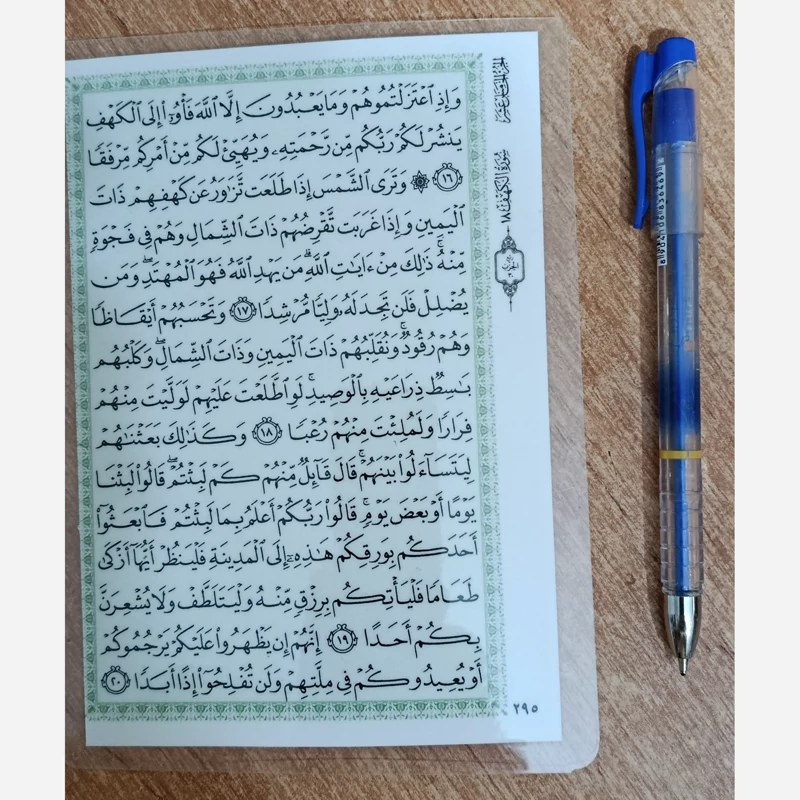 الجزء الخامس عشر
سورة الكهف ١٨
وَإِذِ ٱعۡتَزَلۡتُمُوهُمۡ وَمَا يَعۡبُدُونَ إِلَّا ٱللَّهَ فَأۡوُۥٓاْ إِلَى ٱلۡكَهۡفِ
يَنشُرۡ لَكُمۡ رَبُّكُم مِّن رَّحۡمَتِهِۦ وَيُهَيِّئۡ لَكُم مِّنۡ أَمۡرِكُم مِّرۡفَقٗا
١٦ ۞ وَتَرَى ٱلشَّمۡسَ إِذَا طَلَعَت تَّزَٰوَرُ عَن كَهۡفِهِمۡ ذَاتَ
ٱلۡيَمِينِ وَإِذَا غَرَبَت تَّقۡرِضُهُمۡ ذَاتَ ٱلشِّمَالِ وَهُمۡ فِي فَجۡوَةٖ
مِّنۡهُۚ ذَٰلِكَ مِنۡ ءَايَٰتِ ٱللَّهِۗ مَن يَهۡدِ ٱللَّهُ فَهُوَ ٱلۡمُهۡتَدِۖ وَمَن
يُضۡلِلۡ فَلَن تَجِدَ لَهُۥ وَلِيّٗا مُّرۡشِدٗا ١٧ وَتَحۡسَبُهُمۡ أَيۡقَاظٗا
وَهُمۡ رُقُودٞۚ وَنُقَلِّبُهُمۡ ذَاتَ ٱلۡيَمِينِ وَذَاتَ ٱلشِّمَالِۖ وَكَلۡبُهُم
بَٰسِطٞ ذِرَاعَيۡهِ بِٱلۡوَصِيدِۚ لَوِ ٱطَّلَعۡتَ عَلَيۡهِمۡ لَوَلَّيۡتَ مِنۡهُمۡ
فِرَارٗا وَلَمُلِئۡتَ مِنۡهُمۡ رُعۡبٗا ١٨ وَكَذَٰلِكَ بَعَثۡنَٰهُمۡ
لِيَتَسَآءَلُواْ بَيۡنَهُمۡۚ قَالَ قَآئِلٞ مِّنۡهُمۡ كَمۡ لَبِثۡتُمۡۖ قَالُواْ لَبِثۡنَا
يَوۡمًا أَوۡ بَعۡضَ يَوۡمٖۚ قَالُواْ رَبُّكُمۡ أَعۡلَمُ بِمَا لَبِثۡتُمۡ فَٱبۡعَثُوٓاْ
أَحَدَكُم بِوَرِقِكُمۡ هَٰذِهِۦٓ إِلَى ٱلۡمَدِينَةِ فَلۡيَنظُرۡ أَيُّهَآ أَزۡكَىٰ
طَعَامٗا فَلۡيَأۡتِكُم بِرِزۡقٖ مِّنۡهُ وَلۡيَتَلَطَّفۡ وَلَا يُشۡعِرَنَّ
بِكُمۡ أَحَدًا ١٩ إِنَّهُمۡ إِن يَظۡهَرُواْ عَلَيۡكُمۡ يَرۡجُمُوكُمۡ
أَوۡ يُعِيدُوكُمۡ فِي مِلَّتِهِمۡ وَلَن تُفۡلِحُوٓاْ إِذًا أَبَدٗا ٢٠
٢٩٥